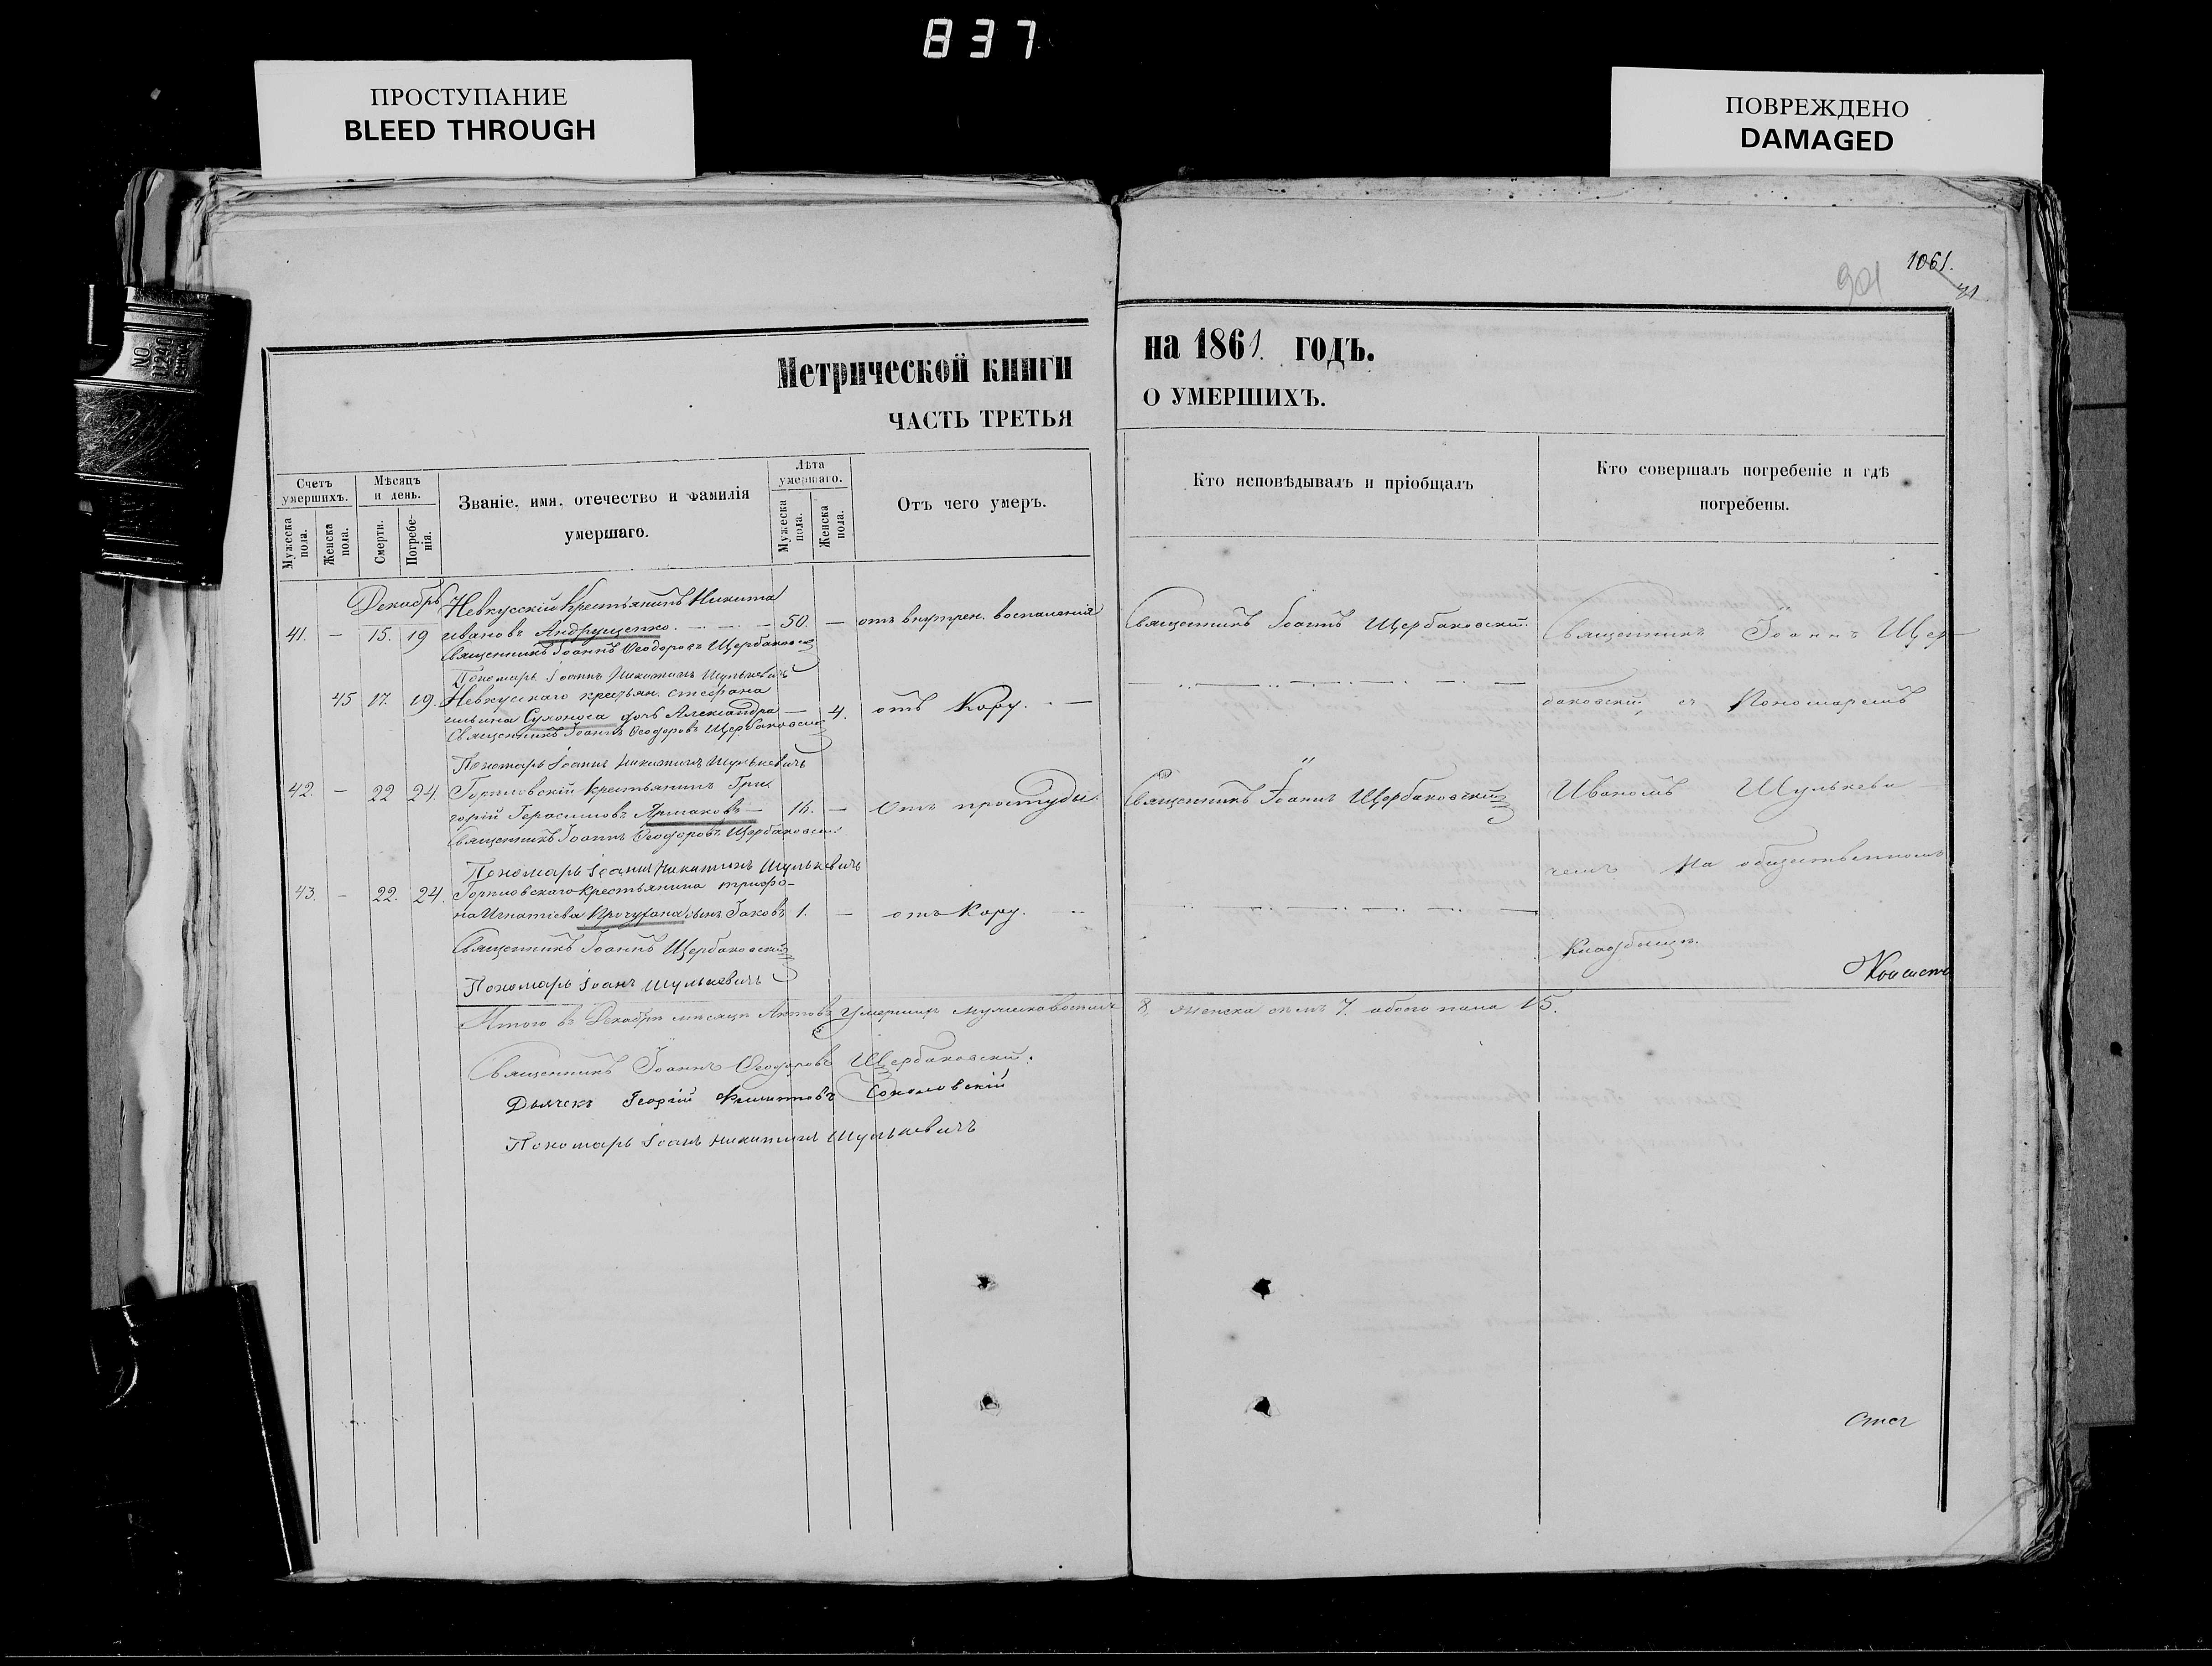 837
ПРОСТУПАНИЕ
BLEED THROUGH
ПОВРЕЖДЕНО
DAMAGED
1061.
901
Метрической книги
на 1861. годъ.
ЧАСТЬ ТРЕТЬЯ
О УМЕРШИХЪ.
Счетъ умершихъ.
Мужеска пола.
Женска пола.
Мѣсяцъ и день.
Смерти.
Погребенія.
Званіе, имя, отечество и фамилія
умершаго.
Лѣта умершаго.
Мужеска пола.
Женска пола.
Отъ чего умеръ.
Кто исповѣдывалъ и пріобщалъ
Кто совершалъ погребеніе и гдѣ
погребены.
Декабрь
Крестьянинъ Никита
41. — 15. 19 Ивановъ Андрущенко. 50. — отъ внутрен. воспаленія Священникъ Іоаннъ Щербаковскій Священникъ Іоаннъ Щер-
Священникъ Іоаннъ Ѳеодоровъ Щербаковскій
Пономарь Іоаннъ Никитинъ Шулькевичъ
45 17. 19. крестьян. Стефана
Сухоноса дочь Александра — 4. отъ Кору. — баковскій съ Пономаремъ
Священникъ Іоаннъ Ѳеодоровъ Щербаковскій
Пономарь Іоаннъ Никитинъ Шулькевичъ
42. — 22 24. крестьянинъ Гри
горій Герасимовъ Ярмаковъ — 16. — Отъ простуды. Священникъ Іоаннъ Щербаковскій Иваномъ Шулькеви
Священникъ Іоаннъ Ѳеодоровъ Щербаковскій
Пономарь Іоаннъ Никитинъ Шулькевичъ
чемъ На общественномъ
43. — 22. 24. Крестьянина Трифо-
на Игнатіева сынъ Іаковъ 1. — отъ Кору.
Священникъ Іоаннъ Щербаковскій
Кладбищѣ.
Пономарь Іоаннъ Шулькевичъ
Итого въ Декабрѣ мѣсяцѣ умершихъ 8, женска 7. обоего пола 15.
Священникъ Іоаннъ Ѳеодоровъ Щербаковскій.
Дьячекъ Георгій Соколовскій
Пономарь Іоаннъ Никитинъ Шулькевичъ